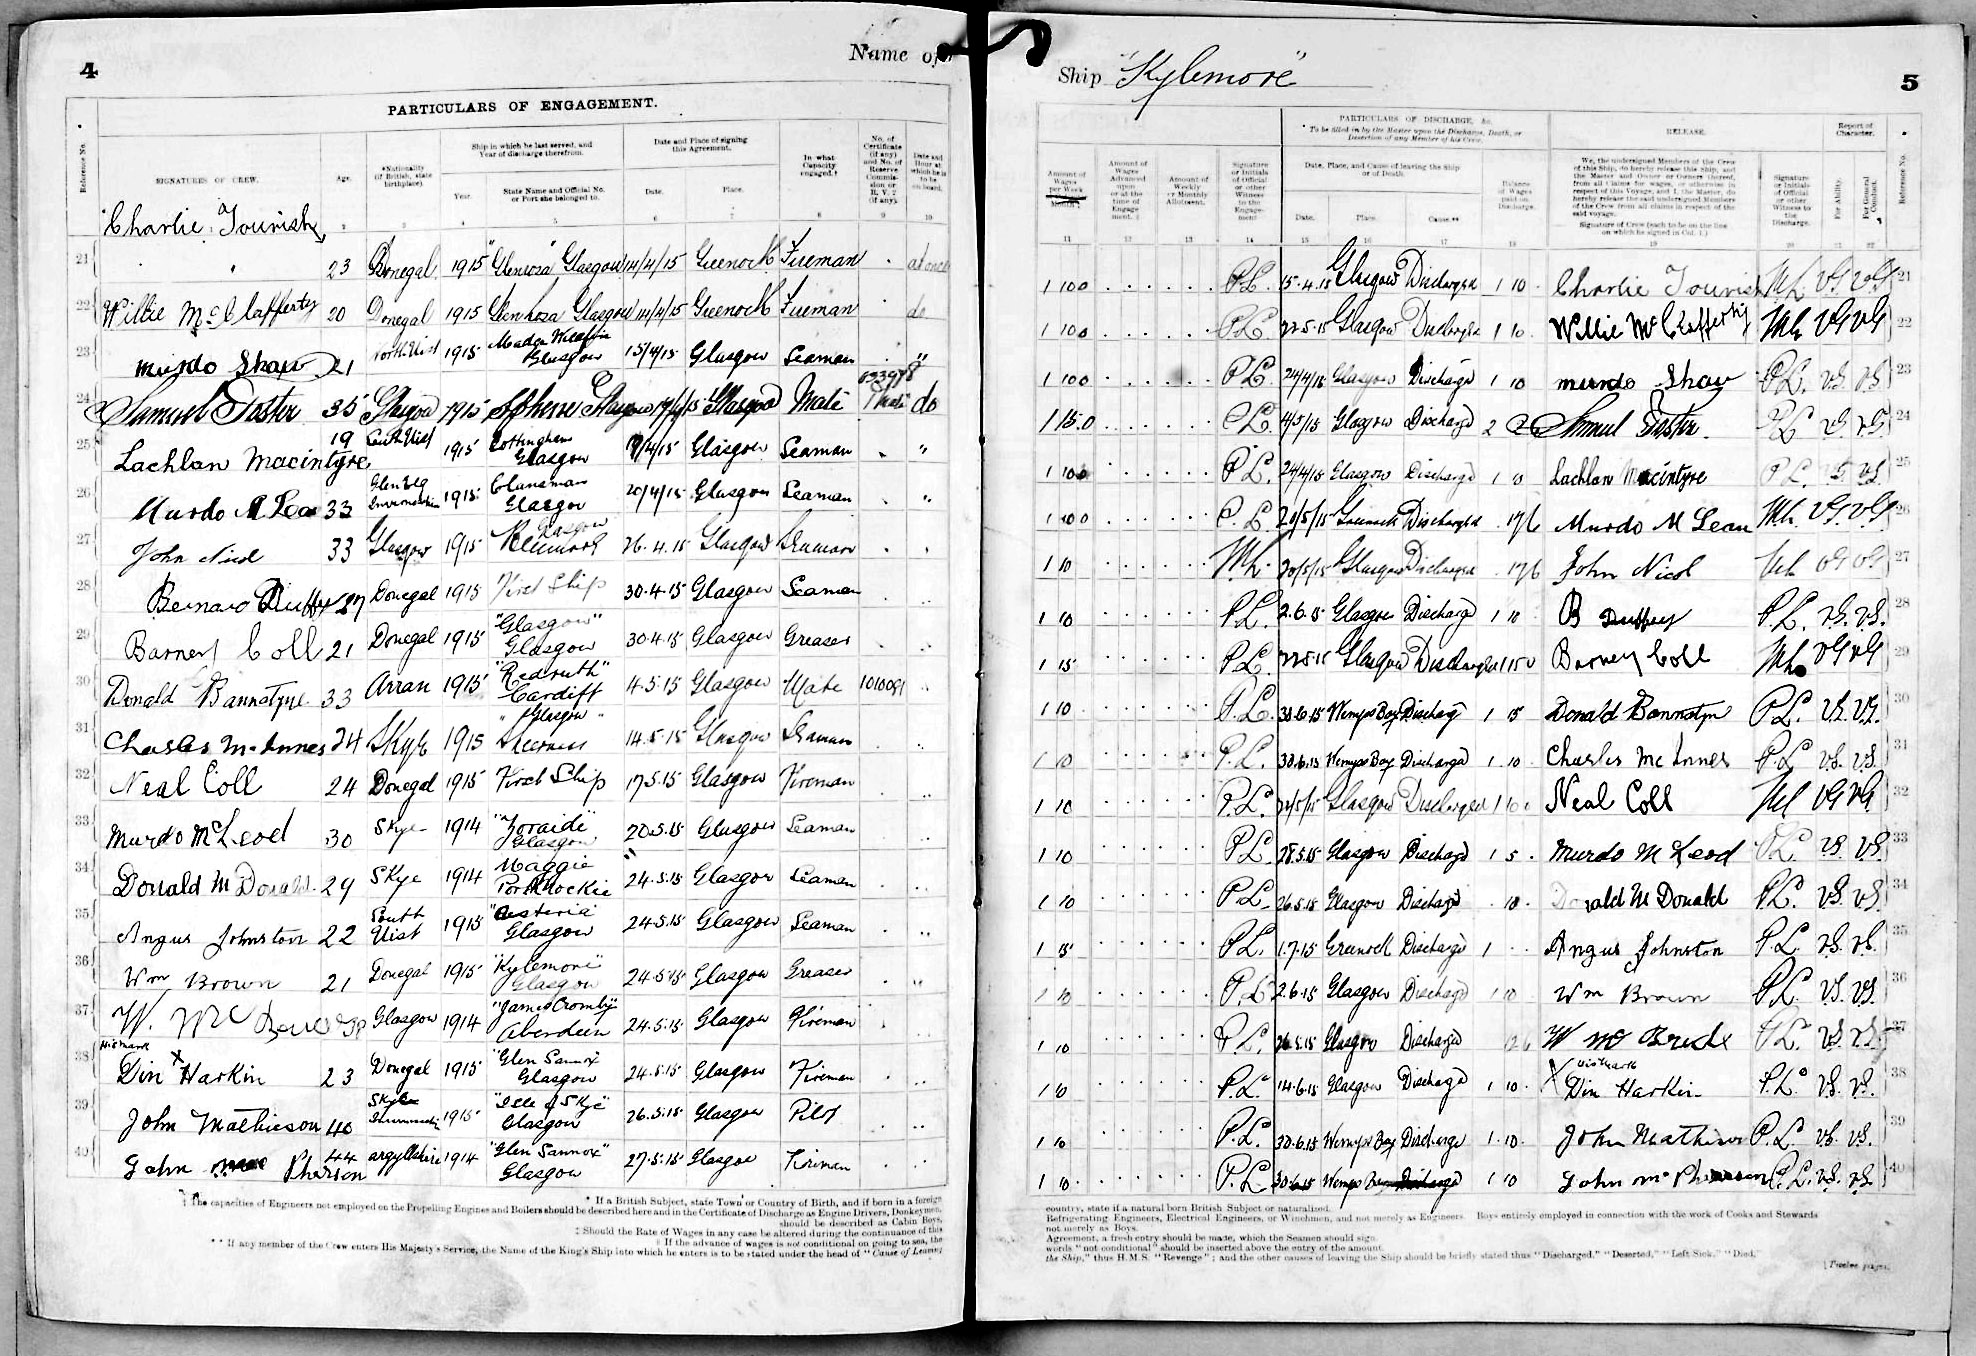 4
Name of
PARTICULARS OF ENGAGEMENT.
Reference No.
SIGNATURES OF CREW.
Age.
*Nationality (if British, state birthplace).
Ship in which he last served, and Year of discharge therefrom.
Year.
State Name and Official No. or Port she belonged to.
Date and Place of signing this Agreement.
Date.
Place.
In what Capacity engaged.†
No. of Certificate (if any) and No. of Reserve Commission or R.V. 2 (if any).
Date and Hour at which he is to be on board.
Charlie Tourish
21 23 Donegal 1915 "Glenrosa" Glasgow 14/4/15 Greenock Fireman at once
22 Willie McClafferty 20 Donegal 1915 Glenrosa Glasgow 14/4/15 Greenock Fireman do
23 Murdo Shaw 21 North Uist 1915 Glasgow 15/4/15 Glasgow Seaman "
24 Samuel Foster 35 Glasgow 1915 Glasgow Glasgow Mate do
25 Lachlan Macintyre 19 South Uist 1915 Glasgow 19/4/15 Glasgow Seaman "
26 Murdo McLean 33 Glenelg 1915 Clansman Glasgow 20/4/15 Glasgow Seaman "
27 John Nicol 33 Glasgow 1915 Glasgow 26.4.15 Glasgow Seaman
28 Bernard Duffy Donegal 1915 First Ship 30.4.15 Glasgow Seaman
29 Barney Coll 21 Donegal 1915 "Glasgow" Glasgow 30.4.15 Glasgow Greaser
30 Donald Bannatyne 33 Arran 1915 "Redruth" Cardiff 4.5.15 Glasgow Mate
31 Charles McInnes 24 Skye 1915 "Glasgow" 14.5.15 Glasgow Seaman
32 Neal Coll 24 Donegal 1915 First Ship 17.5.15 Glasgow Fireman
33 Murdo McLeod 30 Skye 1914 "Zoraide" Glasgow 20.5.15 Glasgow Seaman
34 Donald McDonald 29 Skye 1914 Maggie Portknockie 24.5.15 Glasgow Seaman
35 Angus Johnston 22 South Uist 1915 Glasgow 24.5.15 Glasgow Seaman
36 Wm Brown 21 Donegal 1915 "Kylemore" Glasgow 24.5.15 Glasgow Greaser
37 W. Mc Glasgow 1914 "James Cromby" Aberdeen 24.5.15 Glasgow Fireman
38 Din Harkin His X mark 23 Donegal 1915 "Glen Sannox" Glasgow 24.5.15 Glasgow Fireman
39 John Mathieson 40 Skye 1915 "Isle of Skye" Glasgow 26.5.15 Glasgow Pilot
40 John McPherson 44 Argyllshire 1914 "Glen Sannox" Glasgow 27.5.15 Glasgow Fireman
† The capacities of Engineers not employed on the Propelling Engines and Boilers should be described here and in the Certificate of Discharge as Engine Drivers, Donkeymen,
* If a British Subject, state Town or Country of Birth, and if born in a foreign
should be described as Cabin Boys,
‡ Should the Rate of Wages in any case be altered during the continuance of this
§ If the advance of wages is not conditional on going to sea, the
** If any member of the Crew enters His Majesty's Service, the Name of the King's Ship into which he enters is to be stated under the head of "Cause of Leaving
Ship "Kylemore"
5
PARTICULARS OF DISCHARGE, &c.
To be filled in by the Master upon the Discharge, Death, or Desertion of any Member of his Crew.
RELEASE.
Report of Character.
Amount of Wages per Week
Amount of Wages Advanced upon or at the time of Engagement. §
Amount of Weekly or Monthly Allotment.
Signature or Initials of Official or other Witness to the Engagement
Date, Place, and Cause of leaving the Ship or of Death.
Date.
Place.
Cause.**
Balance of Wages paid on Discharge.
We, the undersigned Members of the Crew of this Ship, do hereby release this Ship, and the Master and Owner or Owners thereof, from all Claims for wages, or otherwise in respect of this Voyage, and I, the Master, do hereby release the said undersigned Members of the Crew from all claims in respect of the said voyage.
Signature of Crew (each to be on the line on which he signed in Col. 1.)
Signature or Initials of Official or other Witness to the Discharge.
For Ability.
For General Conduct.
Reference No.
1 10 0 P.L. 15.4.15 Glasgow Discharged 1 10 Charlie Tourish VG VG 21
1 10 0 P.L. 22.5.15 Glasgow Discharged 1 10 Willie McClafferty VG VG 22
1 10 0 P.L. 24/4/15 Glasgow Discharge 1 10 Murdo Shaw P.L. V.G. V.G. 23
1 15 0 P.L. Glasgow Discharge Samuel Foster P.L. V.G. V.G. 24
1 10 0 P.L. 24/4/15 Glasgow Discharge 1 10 Lachlan Macintyre P.L. V.G. V.G. 25
1 10 0 P.L. 20/5/15 Discharged 17/6 Murdo McLean VG VG 26
1 10 20/5/15 Glasgow Discharged 17/6 John Nicol VG VG 27
1 10 P.L. 2.6.15 Glasgow Discharge 1 10 B Duffy P.L. V.G. V.G. 28
1 15 P.L. 22.5.15 Glasgow Discharged 1 15 0 Barney Coll VG VG 29
1 10 P.L. 30.6.15 Wemyss Bay Discharge 1 15 Donald Bannatyne P.L. V.G. V.G. 30
1 10 P.L. 30.6.15 Wemyss Bay Discharge 1 10 Charles McInnes P.L. V.G. V.G. 31
1 10 P.L. Glasgow Discharged 1 10 0 Neal Coll VG VG 32
1 10 P.L. 28.5.15 Glasgow Discharge 1 5 Murdo McLeod P.L. V.G. V.G. 33
1 10 P.L. 26.5.15 Glasgow Discharge 10 Donald McDonald P.L. V.G. V.G. 34
1 15 P.L. 1.7.15 Greenock Discharge 1 Angus Johnston P.L. V.G. V.G. 35
1 10 P.L. 2.6.15 Glasgow Discharge 1 10 Wm Brown P.L. V.G. V.G. 36
1 10 P.L. 26.5.15 Glasgow Discharged W McBride P.L. V.G. V.G. 37
1 10 P.L. 14.6.15 Glasgow Discharged 1 10 X his mark Din Harkin P.L. V.G. V.G. 38
1 10 P.L. 30.6.15 Wemyss Bay Discharge 1 10 John Mathieson P.L. V.G. V.G. 39
1 10 P.L. 30.6.15 Wemyss Bay Discharge 1 10 John McPherson P.L. V.G. V.G. 40
country, state if a natural born British Subject or naturalised.
Refrigerating Engineers, Electrical Engineers, or Winchmen, and not merely as Engineers. Boys entirely employed in connection with the work of Cooks and Stewards
not merely as Boys.
Agreement, a fresh entry should be made, which the Seamen should sign.
words "not conditional" should be inserted above the entry of the amount.
the Ship," thus H.M.S. "Revenge"; and the other causes of leaving the Ship should be briefly stated thus "Discharged," "Deserted," "Left Sick," "Died,"
[Twelve pages.